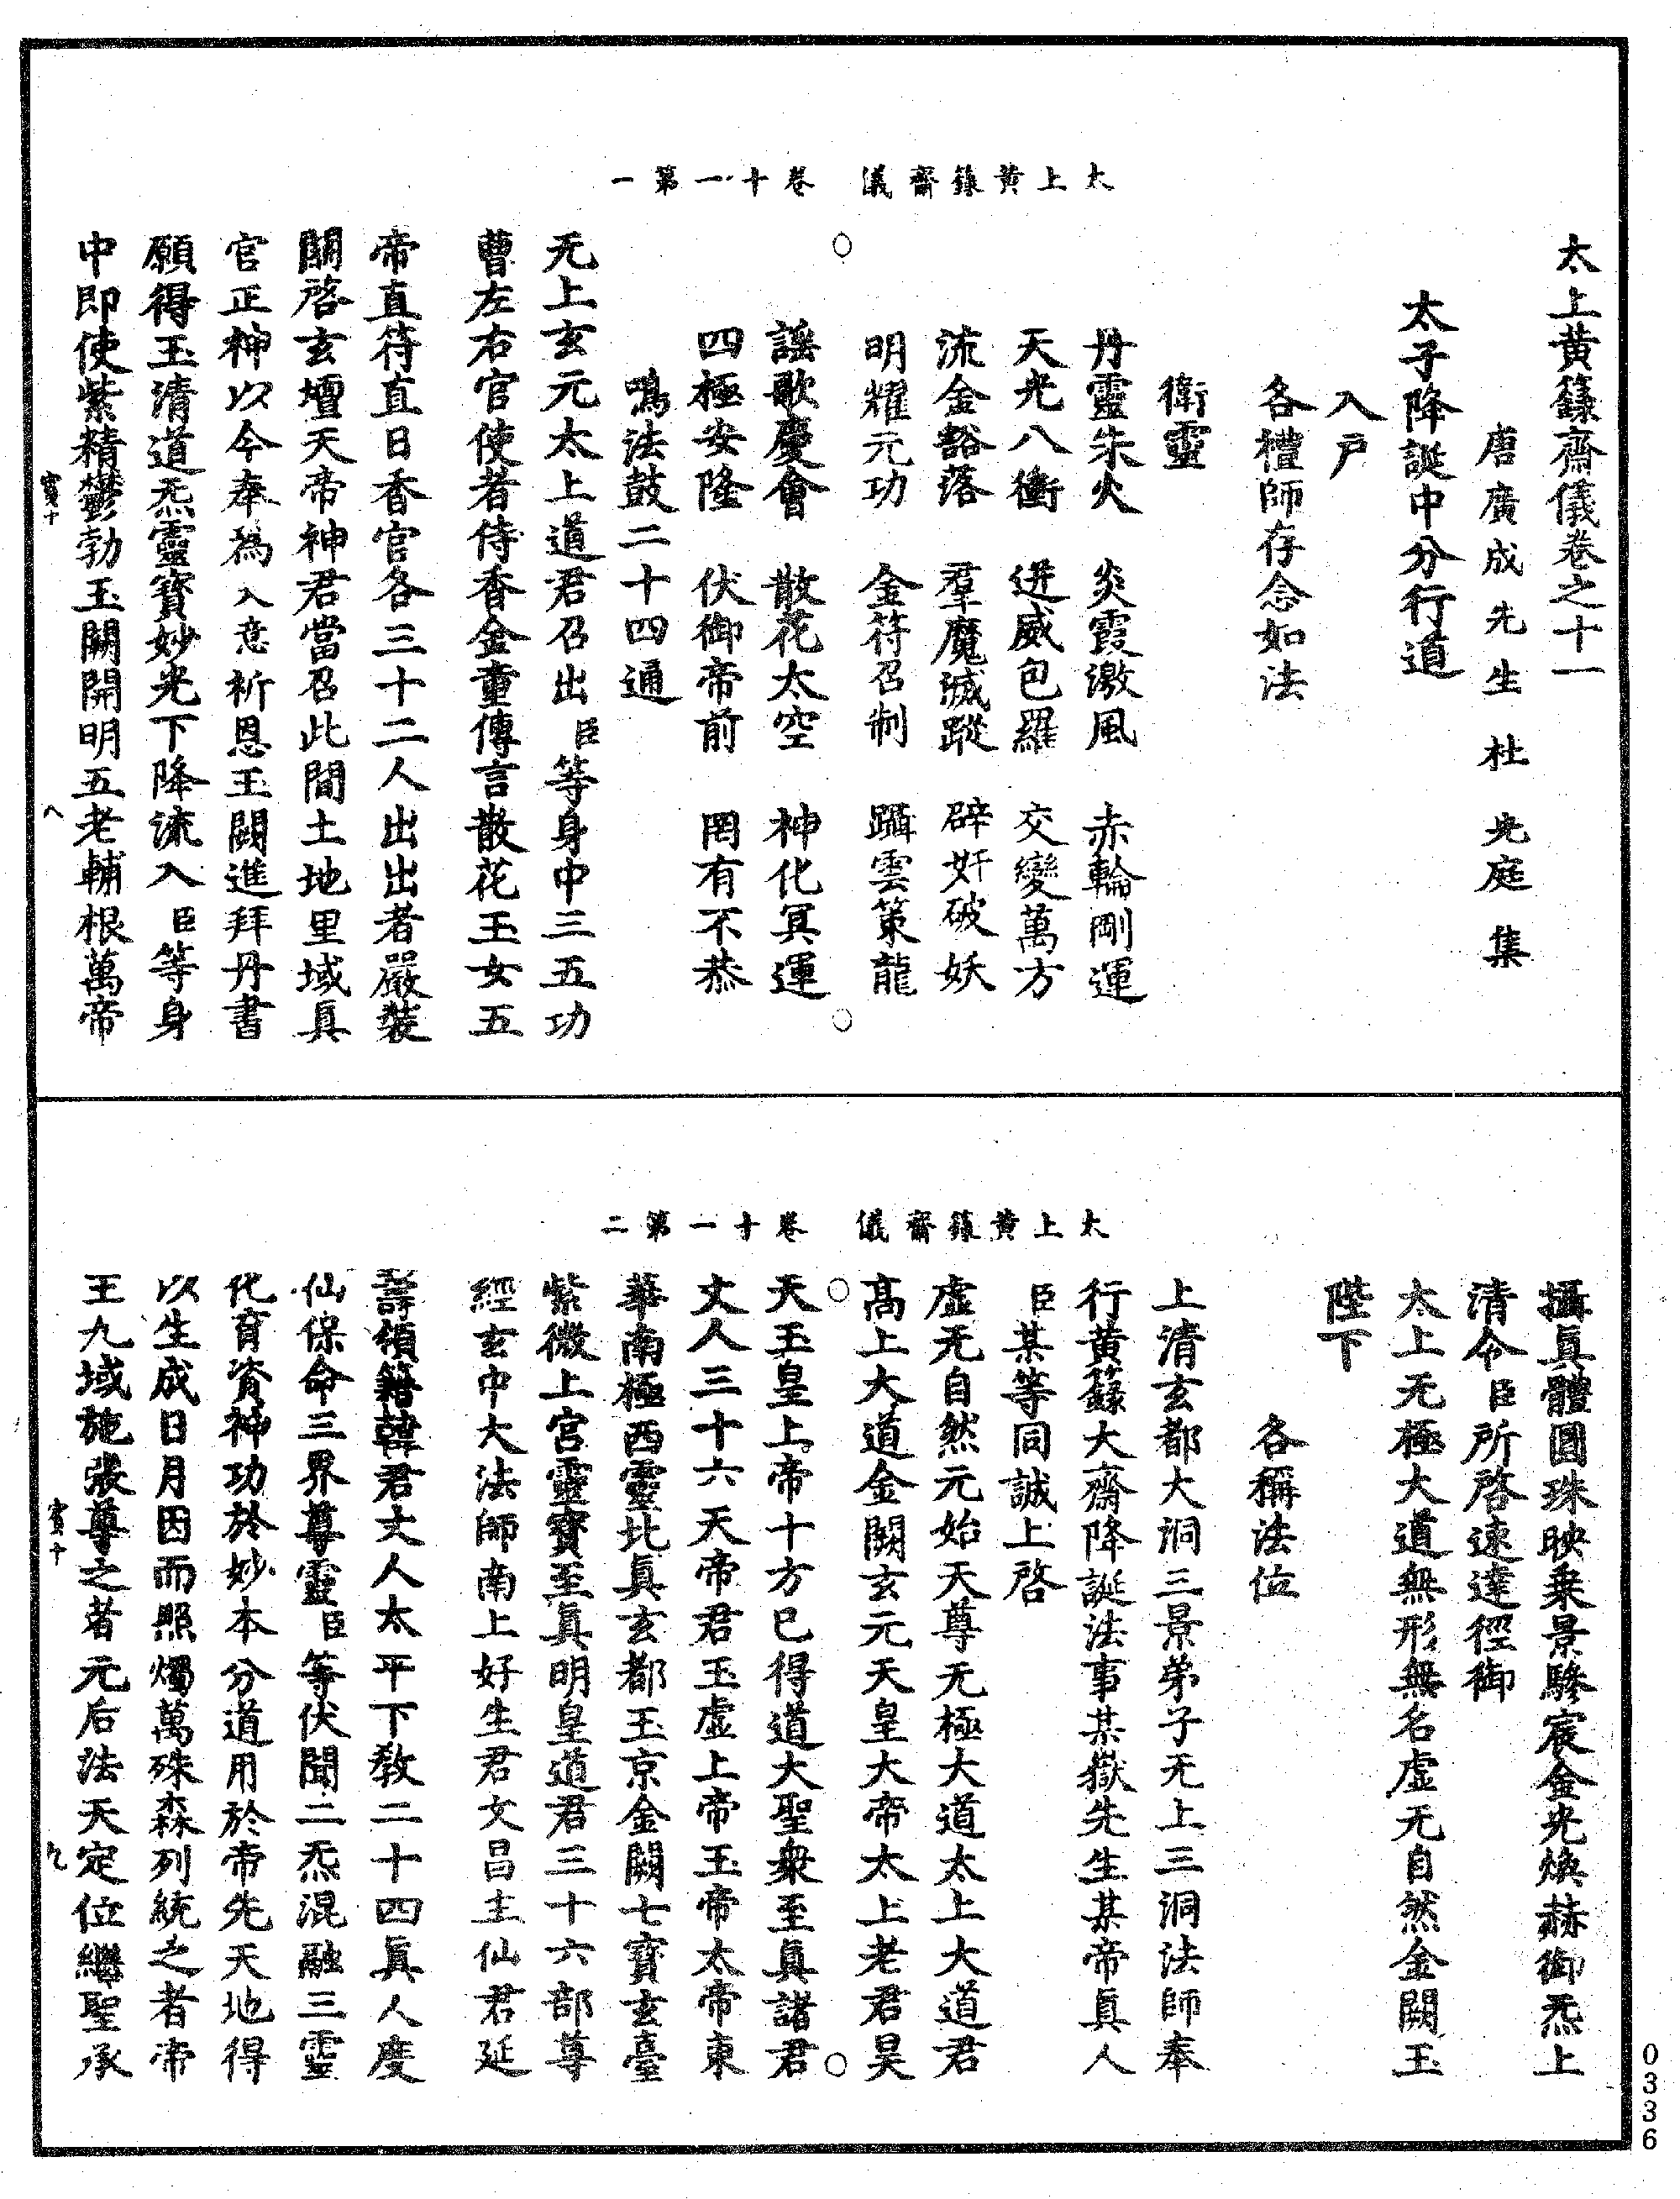 太上黃籙齋儀　卷十一第一
太上黃籙齋儀卷之十一
唐廣成先生杜光庭集
太子降誕中分行道
入戶
各禮師存念如法
衛靈
丹靈朱火　炎霞激風　赤輪剛運
天光八衝　迸威包羅　交變萬方
流金豁落　羣魔滅蹤　辟奸破妖
明耀元功　金符召制　躡雲策龍
謡歌慶會　散花太空　神化冥運
四極安隆　伏御帝前　罔有不恭
鳴法鼓二十四通
无上玄元太上道君召出臣等身中三五功
曹左右官使者侍香金童傳言散花玉女五
帝直符直日香官各三十二人出出者嚴裝
關啓玄壇天帝神君當召此間土地里域真
官正神以今奉爲入意祈恩玉闕進拜丹書
願得玉清道炁靈寶妙光下降流入臣等身
中即使紫精鬱勃玉闕開明五老輔根萬帝
賓十
八
太上黃籙齋儀　卷十一第二
攝真體圓珠映乗景驂宸金光煥赫御炁上
清令臣所啓速達徑御
太上无極大道無形無名虛无自然金闕玉
陛下
各稱法位
上清玄都大洞三景弟子无上三洞法師奉
行黃籙大齋降誕法事某嶽先生某帝真人
臣某等同誠上啓
虛无自然元始天尊无極大道太上大道君
高上大道金闕玄元天皇大帝太上老君昊
天玉皇上帝十方已得道大聖衆至真諸君
丈人三十六天帝君玉虛上帝玉帝太帝東
華南極西靈北真玄都玉京金闕七寶玄臺
紫微上宮靈寶至真明皇道君三十六部尊
經玄中大法師南上好生君文昌主仙君延
壽領籍韓君丈人太平下教二十四真人度
仙保命三界尊靈臣等伏聞二炁混融三靈
化育資神功於妙本分道用於帝先天地得
以生成日月因而照燭萬殊森列統之者帝
王九域施張尊之者元后法天定位繼聖承
賓十
九
0336